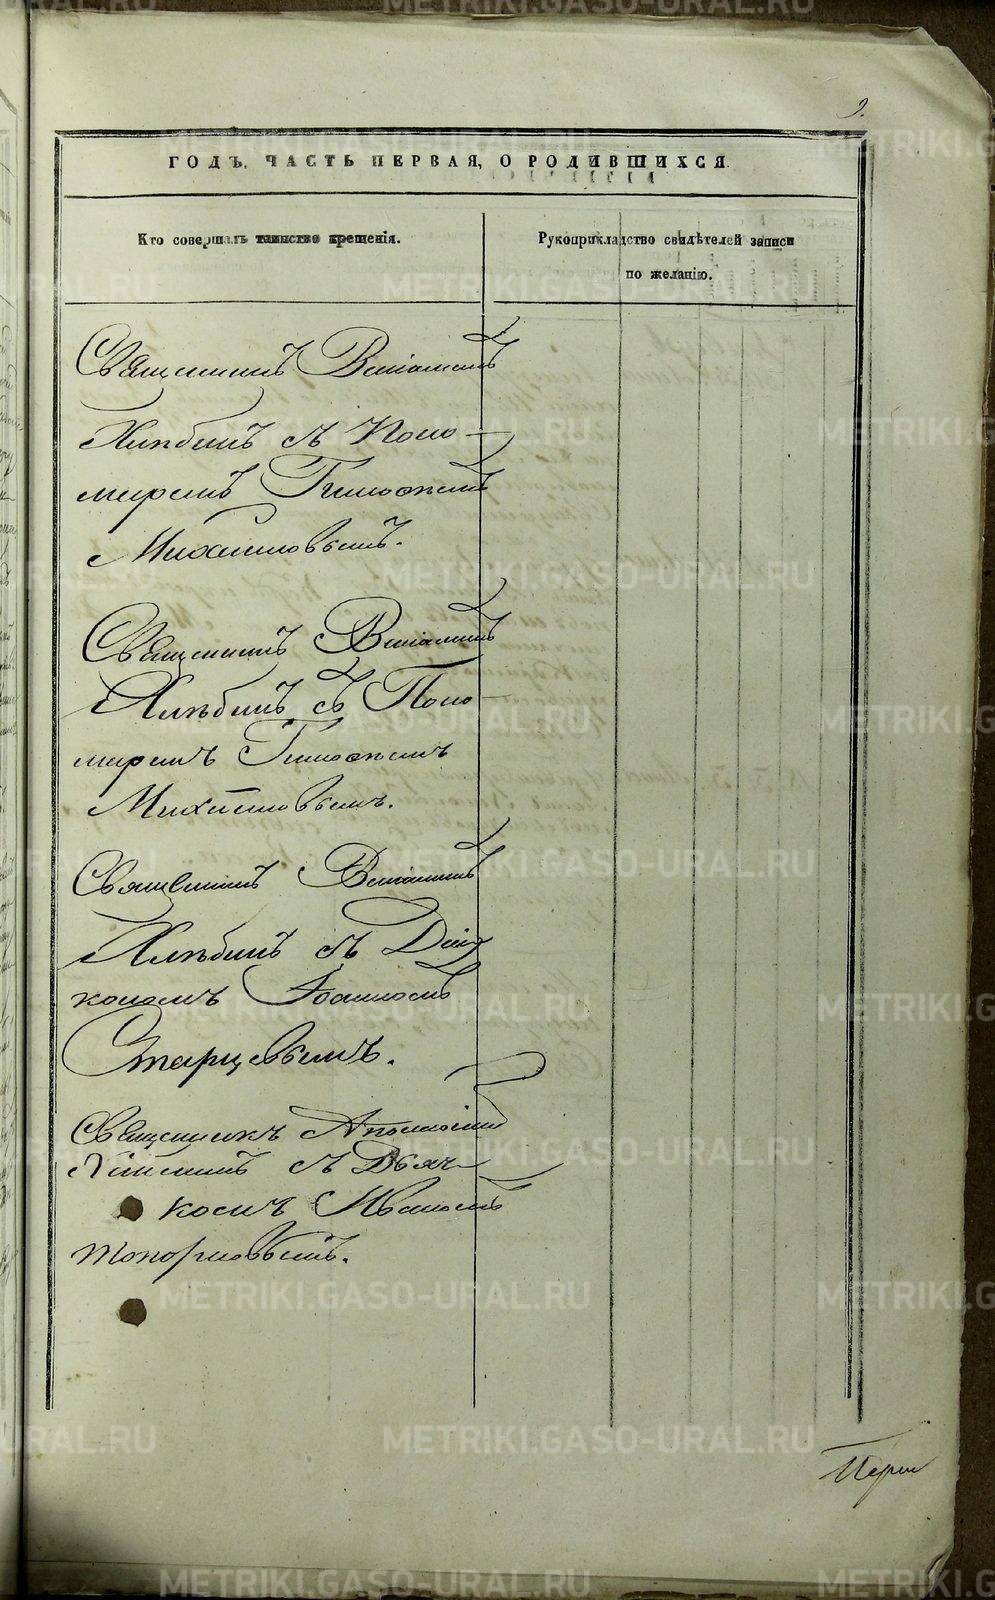 9.
ГОДЪ. ЧАСТЬ ПЕРВАЯ, О РОДИВШИХСЯ.
Кто совершалъ таинство крещенія.
Рукоприкладство свидѣтелей записи
по желанію.
Священникъ Веніаминъ
Хлѣбинъ съ Поно-
маремъ Тимофеемъ
Михайловымъ.
Священникъ Веніаминъ
Хлѣбинъ съ Поно-
маремъ Тимофеемъ
Михайловымъ.
Священникъ Веніаминъ
Хлѣбинъ съ Діа-
кономъ Іоанномъ
Старцевымъ.
Священникъ
съ Дьяч-
комъ Иваномъ
Топорковымъ.
METRIKI.GASO-URAL.RU